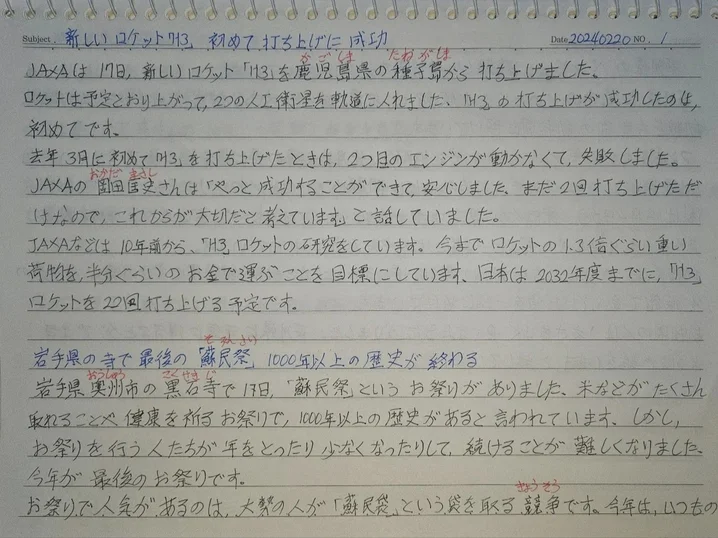 Subject. 新しいロケット「H3」 初めて打ち上げに成功 Date 20240220 NO. 1
かごしま たねがしま
JAXAは17日、新しいロケット「H3」を鹿児島県の種子島から打ち上げました。
ロケットは予定どおり上がって、2つの人工衛星を軌道に入れました。「H3」の打ち上げが成功したのは、
初めてです。
去年3月に初めて「H3」を打ち上げたときは、2つ目のエンジンが動かなくて、失敗しました。
おかだ まさし
JAXAの岡田匡史さんは「やっと成功することができて、安心しました。まだ2回打ち上げただ
けなので、これからが大切だと考えています」と話していました。
JAXAなどは10年前から、「H3」ロケットの研究をしています。今までロケットの1.3倍ぐらい重い
荷物を、半分ぐらいのお金で運ぶことを目標にしています。日本は2032年度までに、「H3」
ロケットを22回打ち上げる予定です。
そみんさい
岩手県の寺で最後の「蘇民祭」 1000年以上の歴史が終わる
おうしゅう こくせきじ
岩手県奥州市の黒石寺で17日、「蘇民祭」というお祭りがありました。米などがたくさん
取れることや、健康を祈るお祭りで、1000年以上の歴史があると言われています。しかし、
お祭りを行う人たちが年をとったり少なくなったりして、続けることが難しくなりました。
今年が最後のお祭りです。
きょうそう
お祭りで人気があるのは、大勢の人が「蘇民袋」という袋を取る競争です。今年は、いつもの